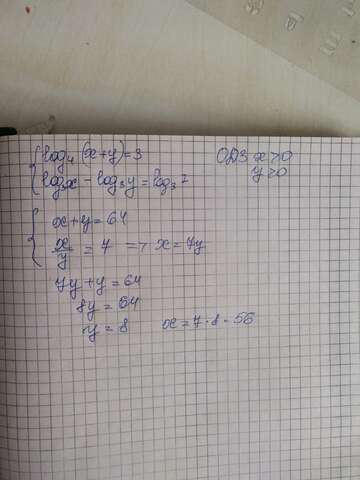 log₄(x+y)=3 ОДЗ x>0
log₃x - log₃y = log₃7 y>0
x+y=64
x/y = 7 => x=7y
7y+y=64
8y=64
y=8 x=7·8=56